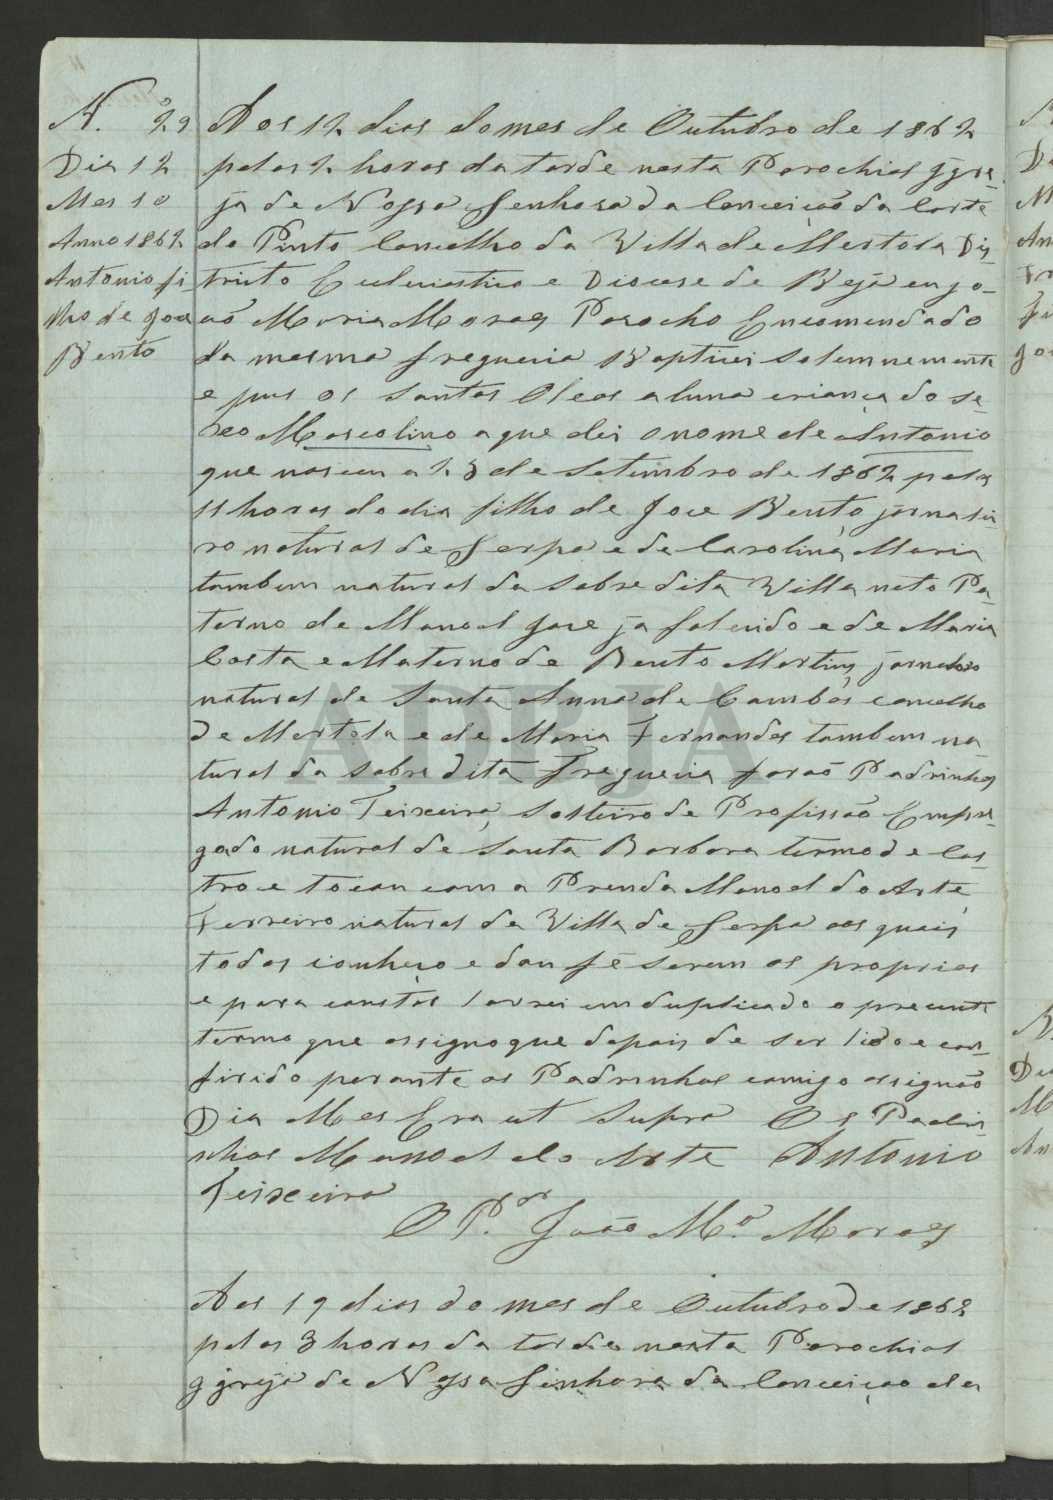 N.º 29
Dia 12
Mes 10
Anno 1862
Antonio fi
lho de Joze
Bento
Aos 12 dias do mes de Outubro de 1862
pelas 2 horas da tarde nesta Parochial Jgre-
ja de Nossa Senhora da Conceição da Corte
do Pinto Concelho da Villa de Mertola Dis-
trito Eccleciastico e Diocese de Beja eu Jo-
aõ Maria Moraes Parocho Encomendado
da mesma freguecia Baptizei solemnemente
e pus os Santos Oleos a huma criança do se-
xo Mascolino a que dei o nome de Antonio
que nasceu a 23 de Setembro de 1862 pelas
11 horas do dia filho de Joze Bento jornalei-
ro natural de Serpa e de Carolina Maria
tambem natural da sobredita Villa neto Pa-
terno de Manoel Joze ja falecido e de Maria
Costa e Materno de Bento Martins jornaleiro
natural de Santa Anna de Cambas concelho
de Mertola e de Maria Fernandes tambem na
tural da sobredita Freguecia foraõ Padrinhos
Antonio Teixeira, Solteiro de Profissão Empre-
gado natural de Santa Barbara termo de Cas-
tro e tocou com a Prenda Manoel do Arte,
Ferreiro natural da Villa de Serpa aos quais
todos conheço e dou fé serem os proprios
e para constar lavrei em duplicado o prezente
termo que assigno que depois de ser lido e con-
firido perante os Padrinhos comigo assignaõ
Dia Mes Era ut Supra Os Padri-
nhos Manoel do Arte Antonio
Teixeira
O P.or João M.a Moraes
Aos 19 dias do mes de Outubro de 1862
pelas 3 horas da tarde nesta Parochial
Jgreja de Nossa Sinhora da Conceiçao da
ADBJA